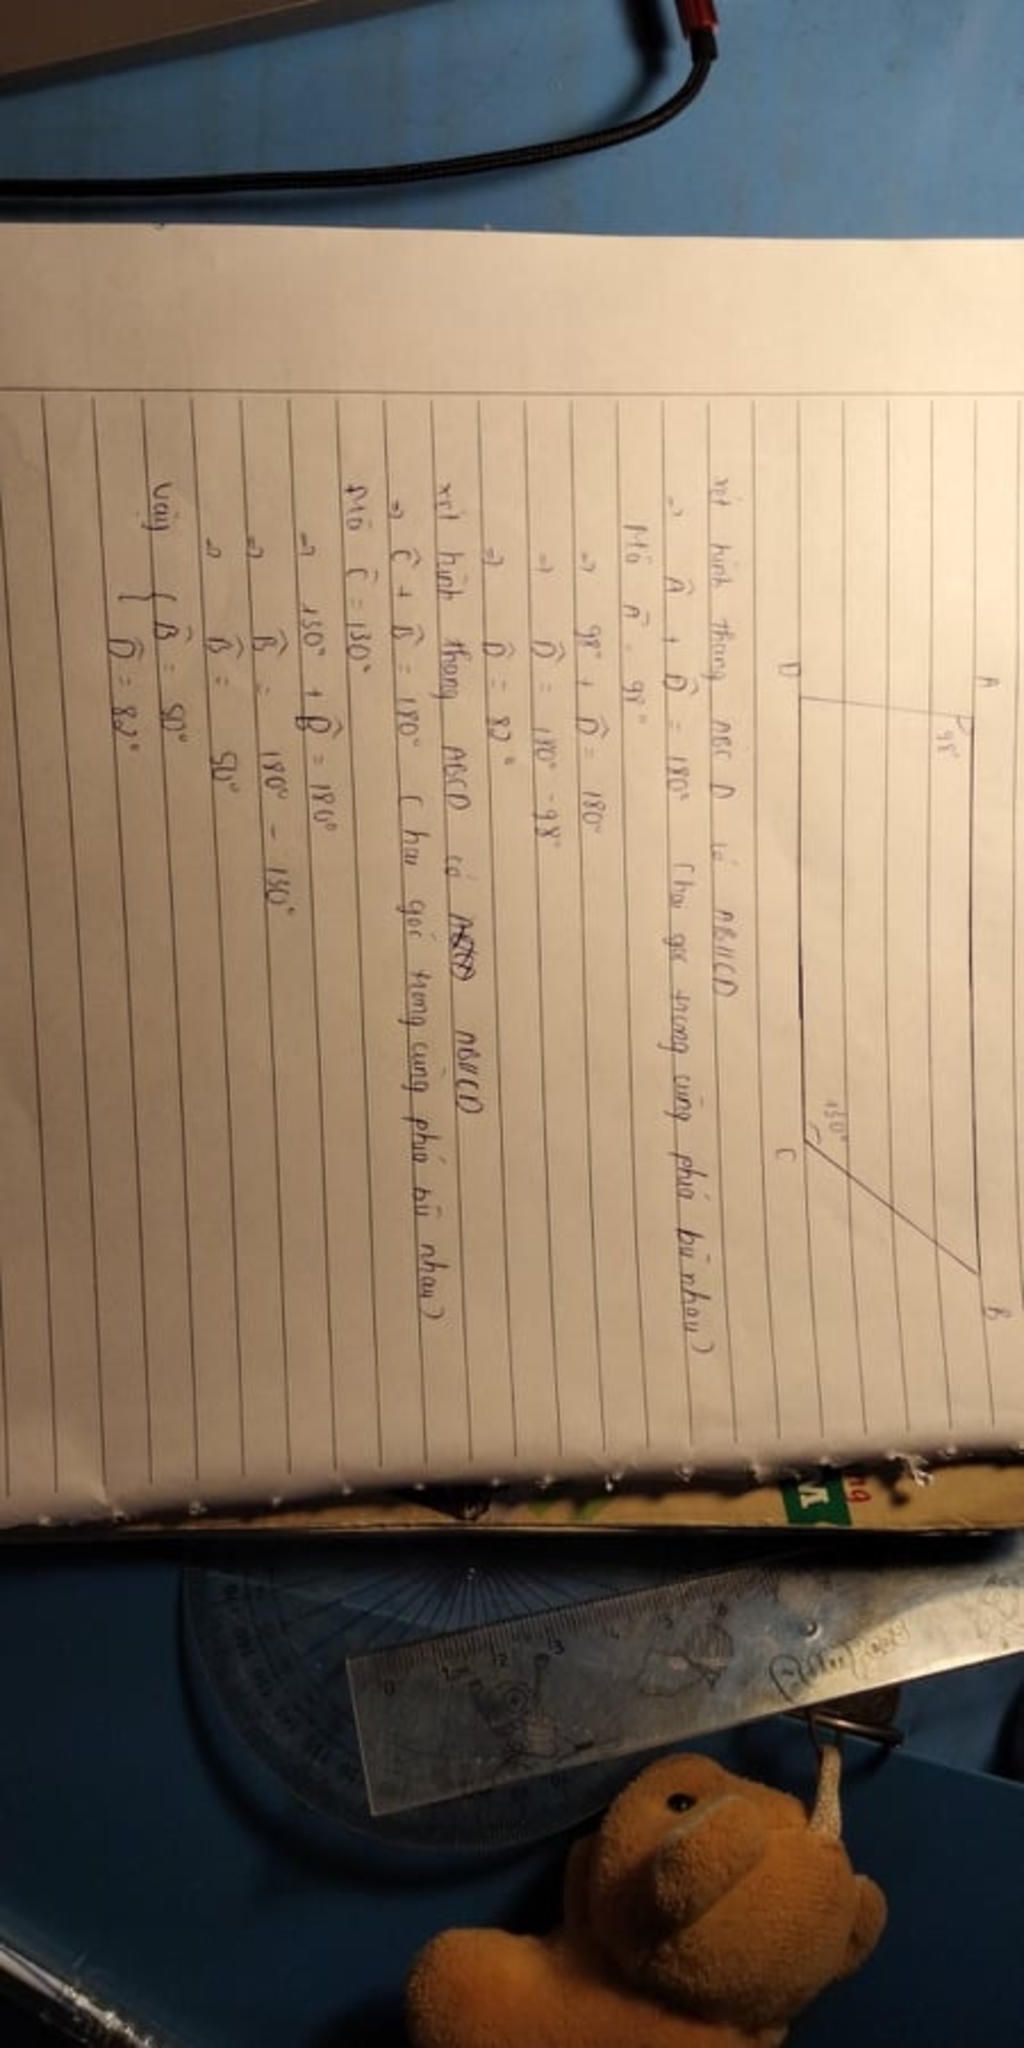 A
B
98°
130°
D
C
xét hình thang ABCD có AB//CD
⇒ Â + D̂ = 180° (hai góc trong cùng phía bù nhau)
Mà Â = 98°
⇒ 98° + D̂ = 180°
⇒ D̂ = 180° - 98°
⇒ D̂ = 82°
xét hình thang ABCD có AB//CD
⇒ Ĉ + B̂ = 180° (hai góc trong cùng phía bù nhau)
Mà Ĉ = 130°
⇒ 130° + B̂ = 180°
⇒ B̂ = 180° - 130°
⇒ B̂ = 50°
Vậy { B̂ = 50°
D̂ = 82°
ng
0 1 2 3 4 5 6